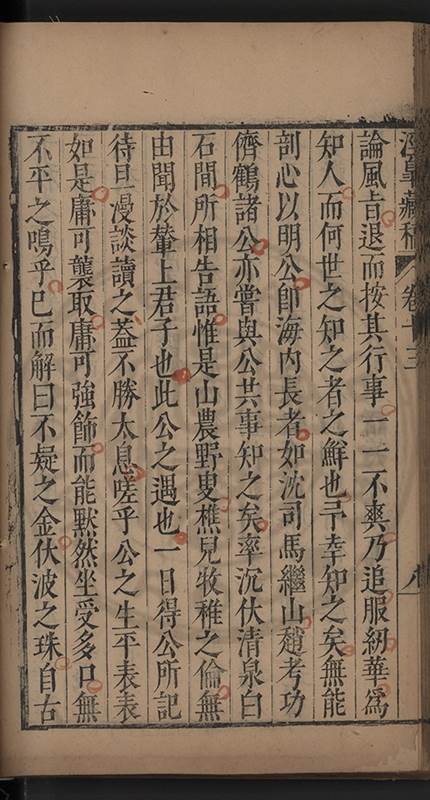 涇臯藏稿 卷十三 八
論風旨退而按其行事一一不爽乃追服紉華爲
知人而何世之知之者之鮮也予幸知之矣無能
剖心以明公卽海內長者如沈司馬繼山趙考功
儕鶴諸公亦嘗與公共事知之矣率沉伏清泉白
石間所相告語惟是山農野叟樵兒牧稚之倫無
由聞於輦上君子也此公之遇也一日得公所記
待旦漫談讀之葢不勝太息嗟乎公之生平表表
如是庸可襲取庸可強飾而能默然坐受多口無
不平之鳴乎已而解曰不疑之金伏波之珠自古